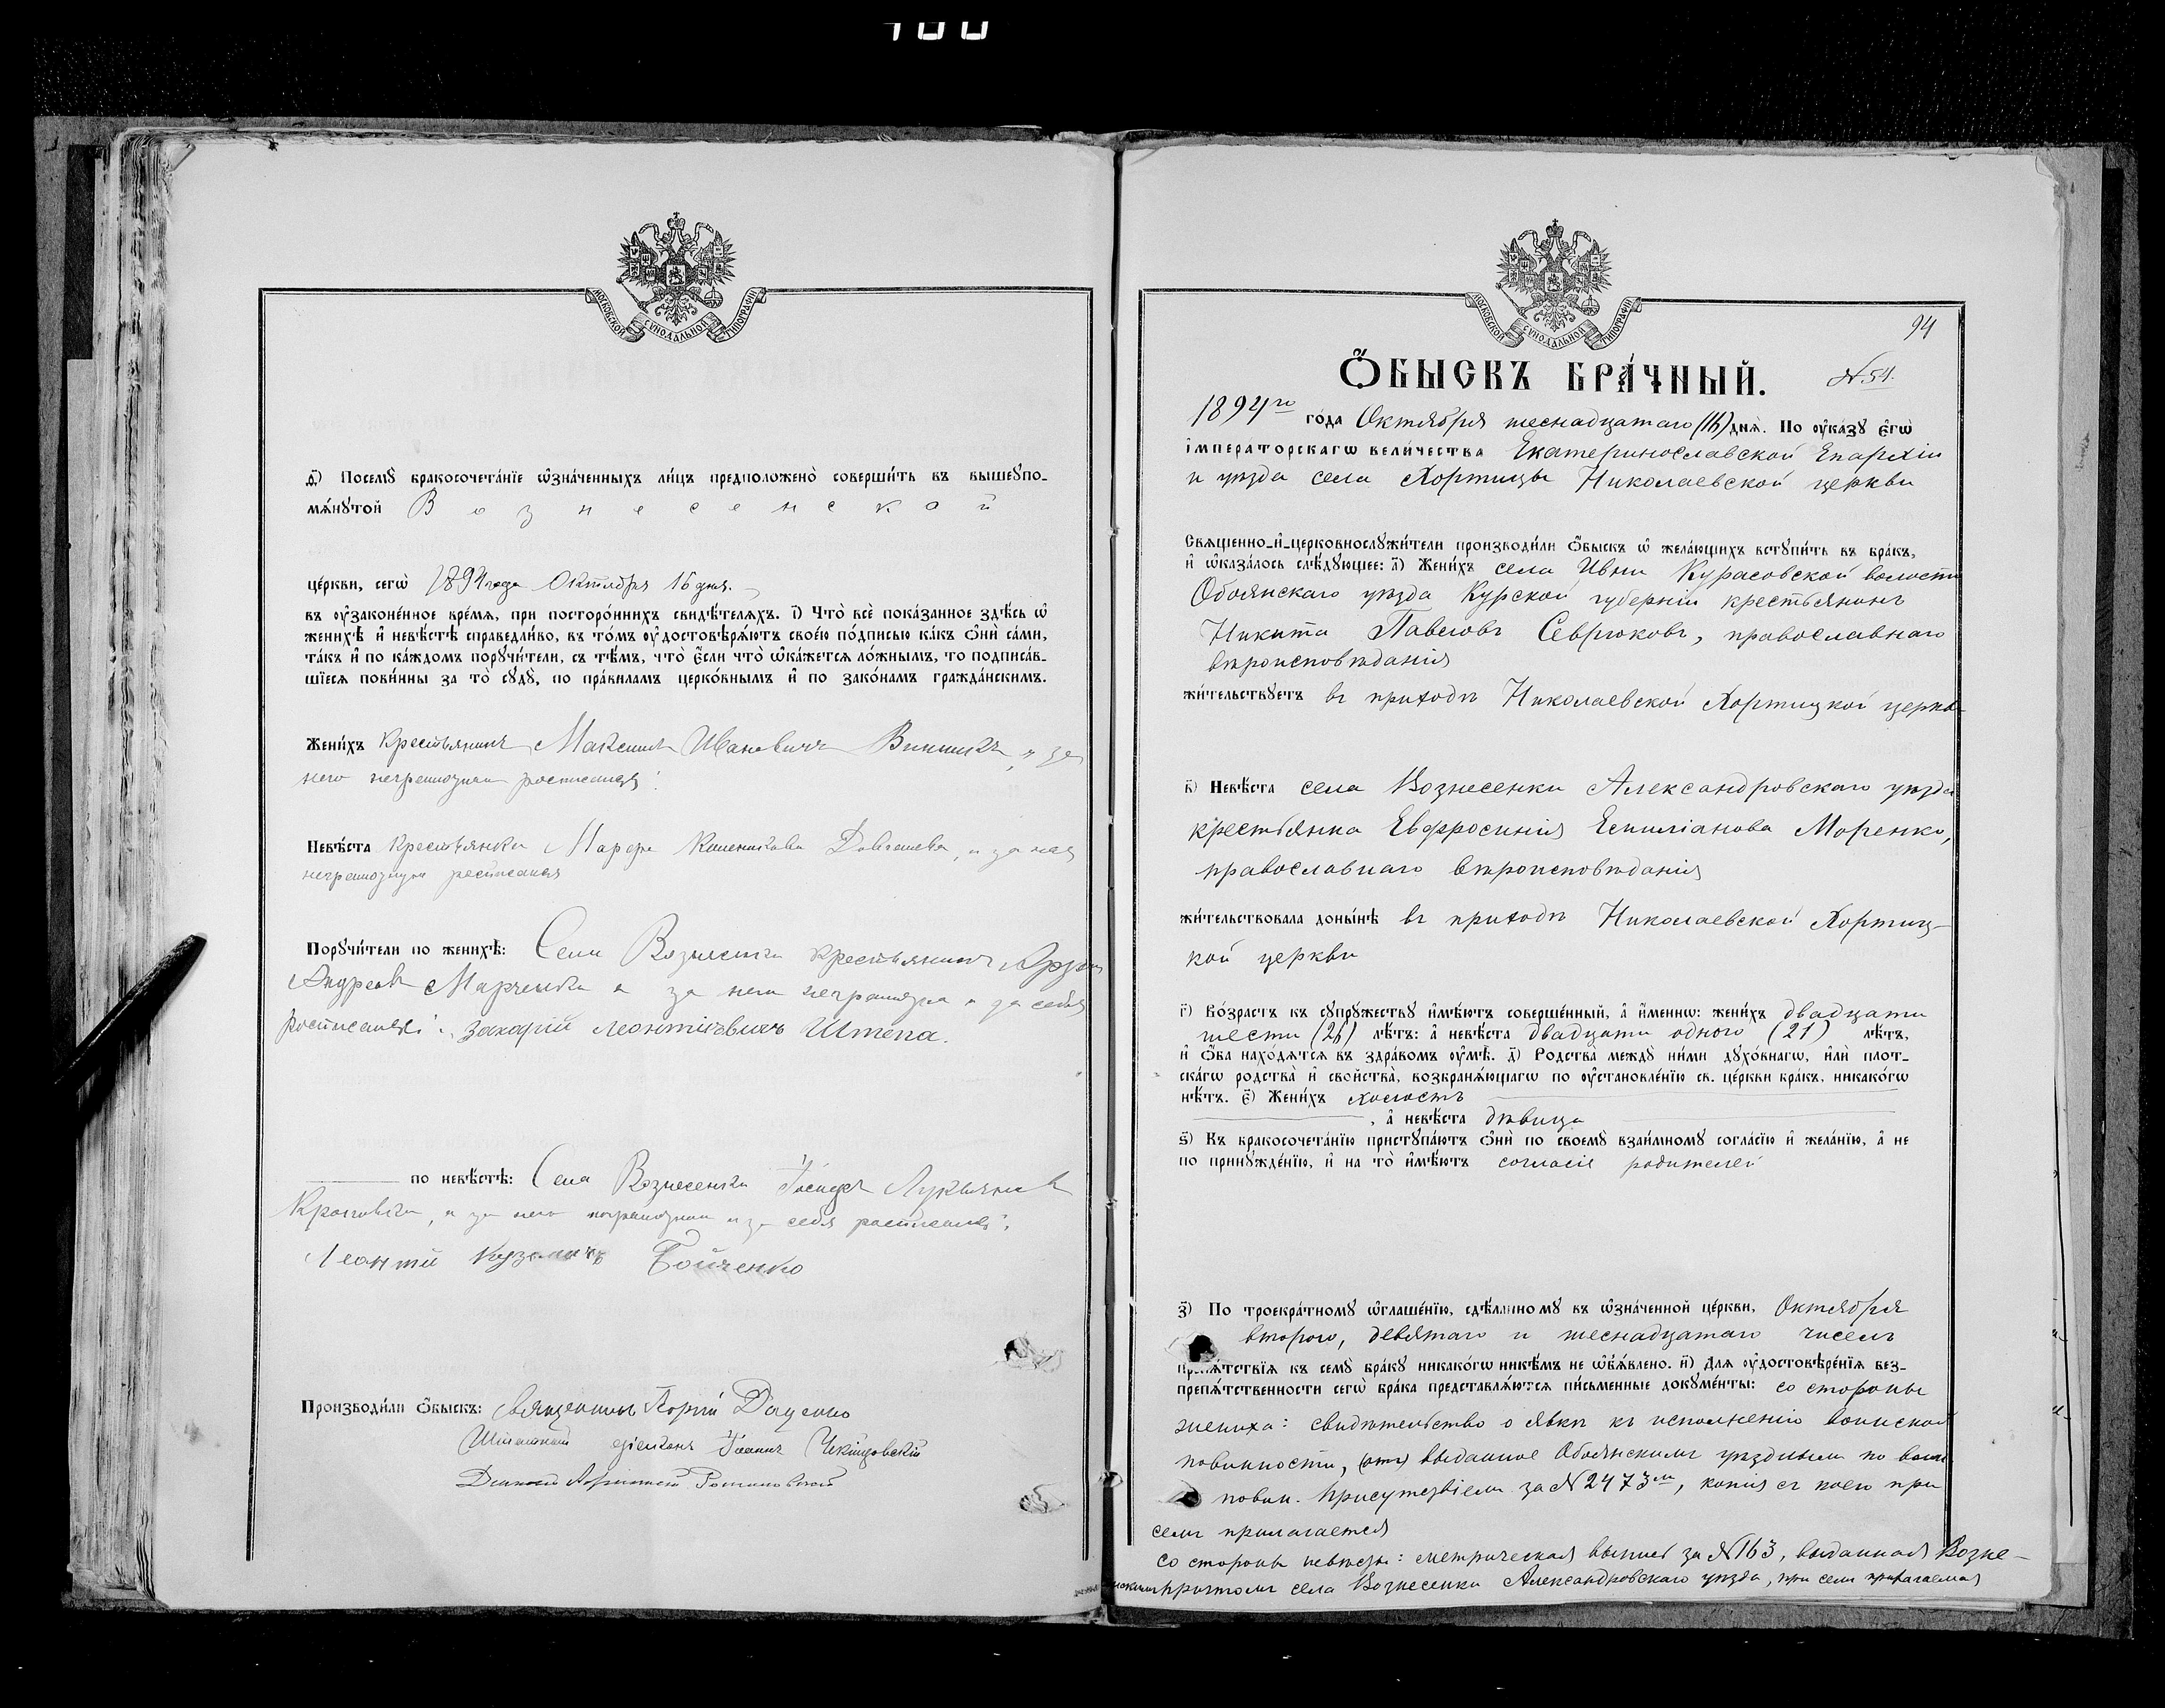 100
МОСКОВСКОЙ СѴНОДАЛЬНОЙ ТИПОГРАФІИ
ѳ҃) Посемꙋ̀ бракосочета́нїе ѡ҆зна́ченныхъ ли́цъ предположено̀ соверши́ть въ вышеꙋпо-
мѧ́нꙋтой Вознесенской
це́ркви, сегѡ̀ 1894 года Октября 16 дня.
въ ᲂу҆законе́нное вре́мѧ, при посторо́ннихъ свидѣ́телѧхъ. і҃) Что̀ всѐ пока́занное здѣ́сь ѡ҆
женихѣ̀ и҆ невѣ́стѣ справедли́во, въ то́мъ ᲂу҆достовѣрѧ́ютъ свое́ю по́дписью ка́къ ѻ҆нѝ са́ми,
та́къ и҆ по ка́ждомъ порꙋчи́тели, съ тѣ́мъ, что̀ є҆́сли что̀ ѡ҆ка́жетсѧ ло́жнымъ, то подписа́в-
шїесѧ пови́нны за то̀ сꙋдꙋ̀, по пра́виламъ церко́внымъ и҆ по зако́намъ гражда́нскимъ.
Жени́хъ крестьянинъ Максимъ Ивановичъ Винникъ, и за
него неграмотнаго росписался:
Невѣ́ста крестьянка Марфа Довгашева, и за нея
неграмотную росписался
Порꙋчи́тели по женихѣ̀: Села Вознесенки крестьянинъ
Андреевъ Марченко и за него неграмотнаго и за себя
росписался: Захарій Леонтіевичъ Штепа.
по невѣ́стѣ: Села Вознесенки Іосифъ Лукьяновъ
и за него неграмотнаго и за себя росписался:
Леонтій Кузмичъ Бойченко
Производи́ли ѻ҆́быскъ: Священникъ Доценко
діаконъ Іоаннъ
94
МОСКОВСКОЙ СѴНОДАЛЬНОЙ ТИПОГРАФІИ
Ѻ҆́БЫСКЪ БРА́ЧНЫЙ. №54.
1894го го́да Октября шеснадцатаго (16) днѧ̀. По ᲂу҆ка́зꙋ є҆гѡ̀
и҆мпера́торскагѡ вели́чества Екатеринославской Епархіи
и уѣзда села Хортицы Николаевской церкви
Свѧще́нно-и҆-церковнослꙋжи́тели производи́ли ѻ҆́быскъ ѡ҆ жела́ющихъ встꙋпи́ть въ бра́къ,
и҆ ѡ҆каза́лось слѣ́дꙋющее: а҃) Жени́хъ села Ивни Курасовской волости
Обоянскаго уѣзда Курской губерніи крестьянинъ
Никита Павловъ Севрюковъ, православнаго
вѣроисповѣданія
жи́тельствꙋетъ въ приходѣ Николаевской Хортицкой церкв-
в҃) Невѣ́ста села Вознесенки Александровскаго уѣзда
крестьянка Евфросинія Емиліанова Моренко,
православнаго вѣроисповѣданія
жи́тельствовала доны́нѣ въ приходѣ Николаевской Хортиц-
кой церкви
г҃) Во́зрастъ къ сꙋпрꙋ́жествꙋ и҆мѣ́ютъ соверше́нный, а҆ и҆́меннѡ: жени́хъ двадцати
шести (26) лѣ́тъ: а҆ невѣ́ста двадцати одного (21) лѣ́тъ,
и҆ ѻ҆́ба нахо́дѧтсѧ въ здра́вомъ ᲂу҆мѣ̀. д҃) Родства̀ междꙋ̀ ни́ми дꙋхо́внагѡ, и҆лѝ плот-
ска́гѡ родства̀ и҆ свойства̀, возбранѧ́ющагѡ по ᲂу҆становле́нїю св. це́ркви бра́къ, никако́гѡ
нѣ́тъ. є҃) Жени́хъ холостъ
, а҆ невѣ́ста дѣвица
ѕ҃) Къ бракосочета́нїю пристꙋпа́ютъ ѻ҆нѝ по своемꙋ̀ взаи́мномꙋ согла́сїю и҆ жела́нїю, а҆ не
по принꙋжде́нїю, и҆ на то̀ и҆мѣ́ютъ согласіе родителей
з҃) По троекра́тномꙋ ѡ҆глаше́нїю, сдѣ́ланномꙋ въ ѡ҆зна́ченной це́ркви, Октября
второго, девятаго и шеснадцатаго чиселъ
препѧ́тствїѧ къ семꙋ̀ бра́кꙋ никако́гѡ никѣ́мъ не ѡ҆б̾ѧ́влено. и҃) Длѧ ᲂу҆достовѣре́нїѧ без-
препѧ́тственности сегѡ̀ бра́ка представлѧ́ютсѧ пи́сьменные докꙋме́нты: со стороны
жениха: свидѣтельство о явкѣ къ исполненію воинской
повинности, (отъ) выданное Обоянскимъ уѣзднымъ по воин.
повин. присутствіемъ за №2473мъ, копія съ коего при
семъ прилагается
со стороны невѣсты: метрическая выпись за №163, выданная Возне-
сенскимъ причтомъ села Вознесенки Александровскаго уѣзда, при семъ прилагаемая